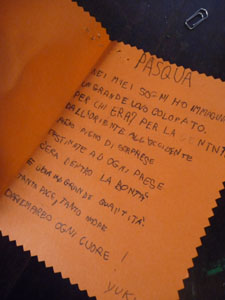 PASQUA
NEI MIEI SOGNI HO IMMAGINA
UN GRANDE UOVO COLORATO.
PER CHI ERA? PER LA GENTE
DALL'ORIENTE ALL'OCCIDENTE
PIENO DI SORPRESE
DESTINATE AD OGNI PAESE
C'ERA DENTRO LA BONTÀ
E UNA GRANDE QUANTITÀ
TANTA PACE, TANTO AMORE
OGNI CUORE!
YUK